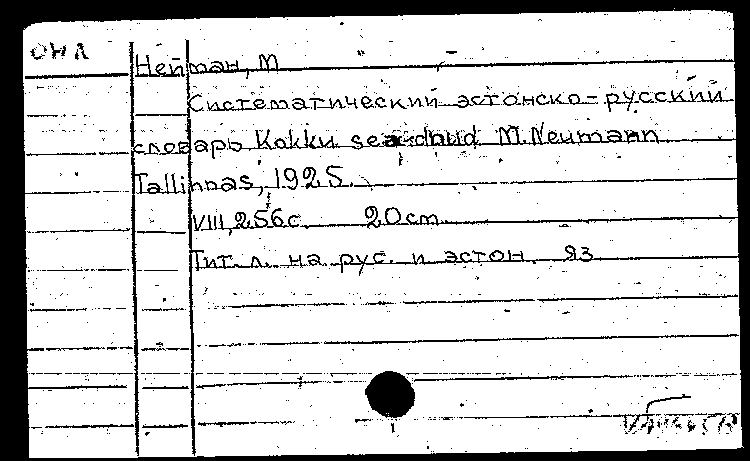 ОНЛ
Нейман, М
Систематический эстонско-русский
словарь Kokku seadnud M. Neumann
Tallinnas, 1925.
VIII, 256 с. 20 cm
Тит. л. на рус. и эстон. яз